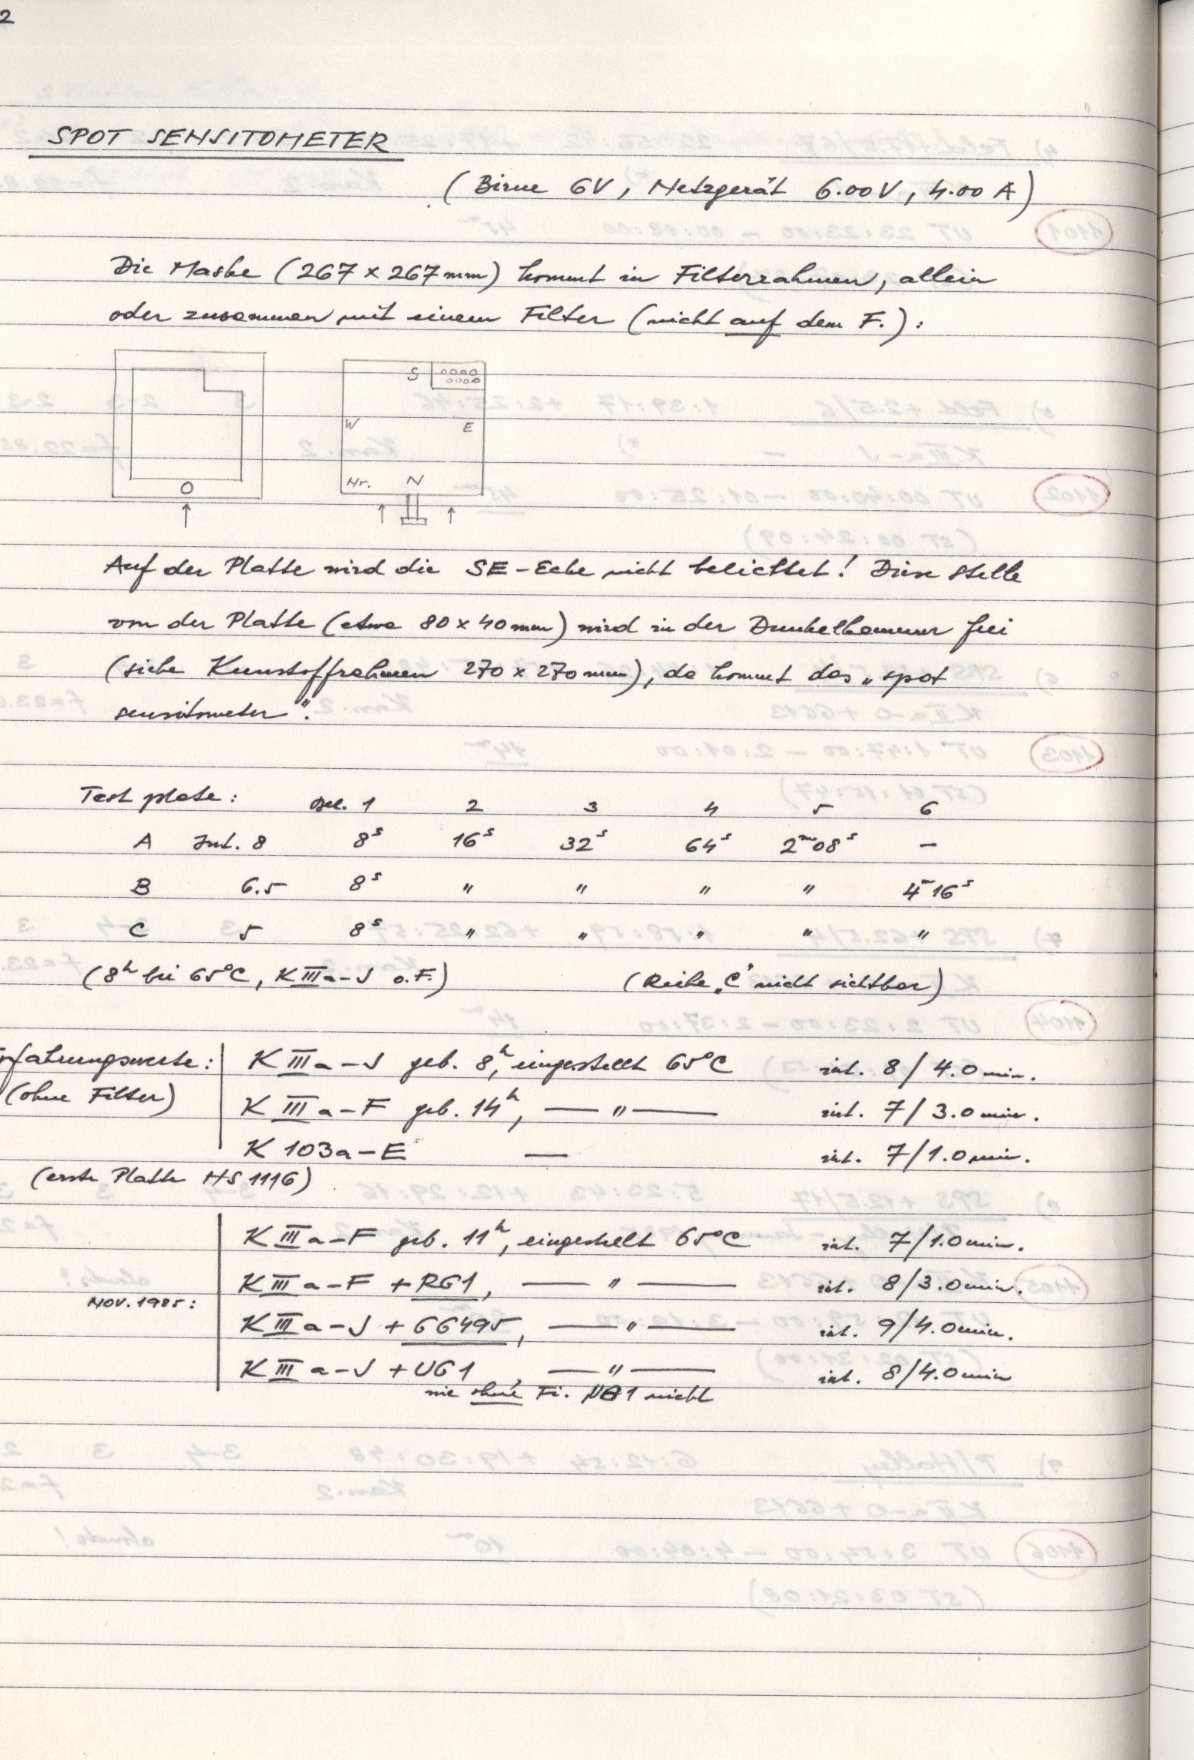 2
SPOT SENSITOMETER
(Birne 6V, Netzgerät 6.00V, 4.00 A)
Die Maske (267 x 267 mm) kommt in Filterrahmen, allein
oder zusammen mit einem Filter (nicht auf dem F.):
S
W E
Nr. N
Auf der Platte wird die SE-Ecke nicht belichtet! Diese Stelle
von der Platte (etwa 80 x 40 mm) wird in der Dunkelkammer frei
(siehe Kunstoffrahmen 270 x 270 mm), da kommt das „spot
sensitometer".
Test plate: Bel. 1 2 3 4 5 6
A Int. 8 8s 16s 32s 64s 2m08s –
B 6.5 8s " " " " 4m16s
C 5 8s " " " " "
(8h bei 65°C, K IIIa-J o.F.) (Reihe „C" nicht sichtbar)
rfahrungswerte: K IIIa-J geb. 8h, eingestellt 65°C int. 8/4.0 min.
(ohne Filter) K IIIa-F geb. 14h, — " — int. 7/3.0 min.
K 103a-E — int. 7/1.0 min.
(erste Platte HS 1116)
K IIIa-F geb. 11h, eingestellt 65°C int. 7/1.0 min.
K IIIa-F + RG1, — " — int. 8/3.0 min.
NOV. 1985: K IIIa-J + GG495, — " — int. 9/4.0 min.
K IIIa-J + UG1, — " — int. 8/4.0 min
wie ohne Fi. UG1 nicht